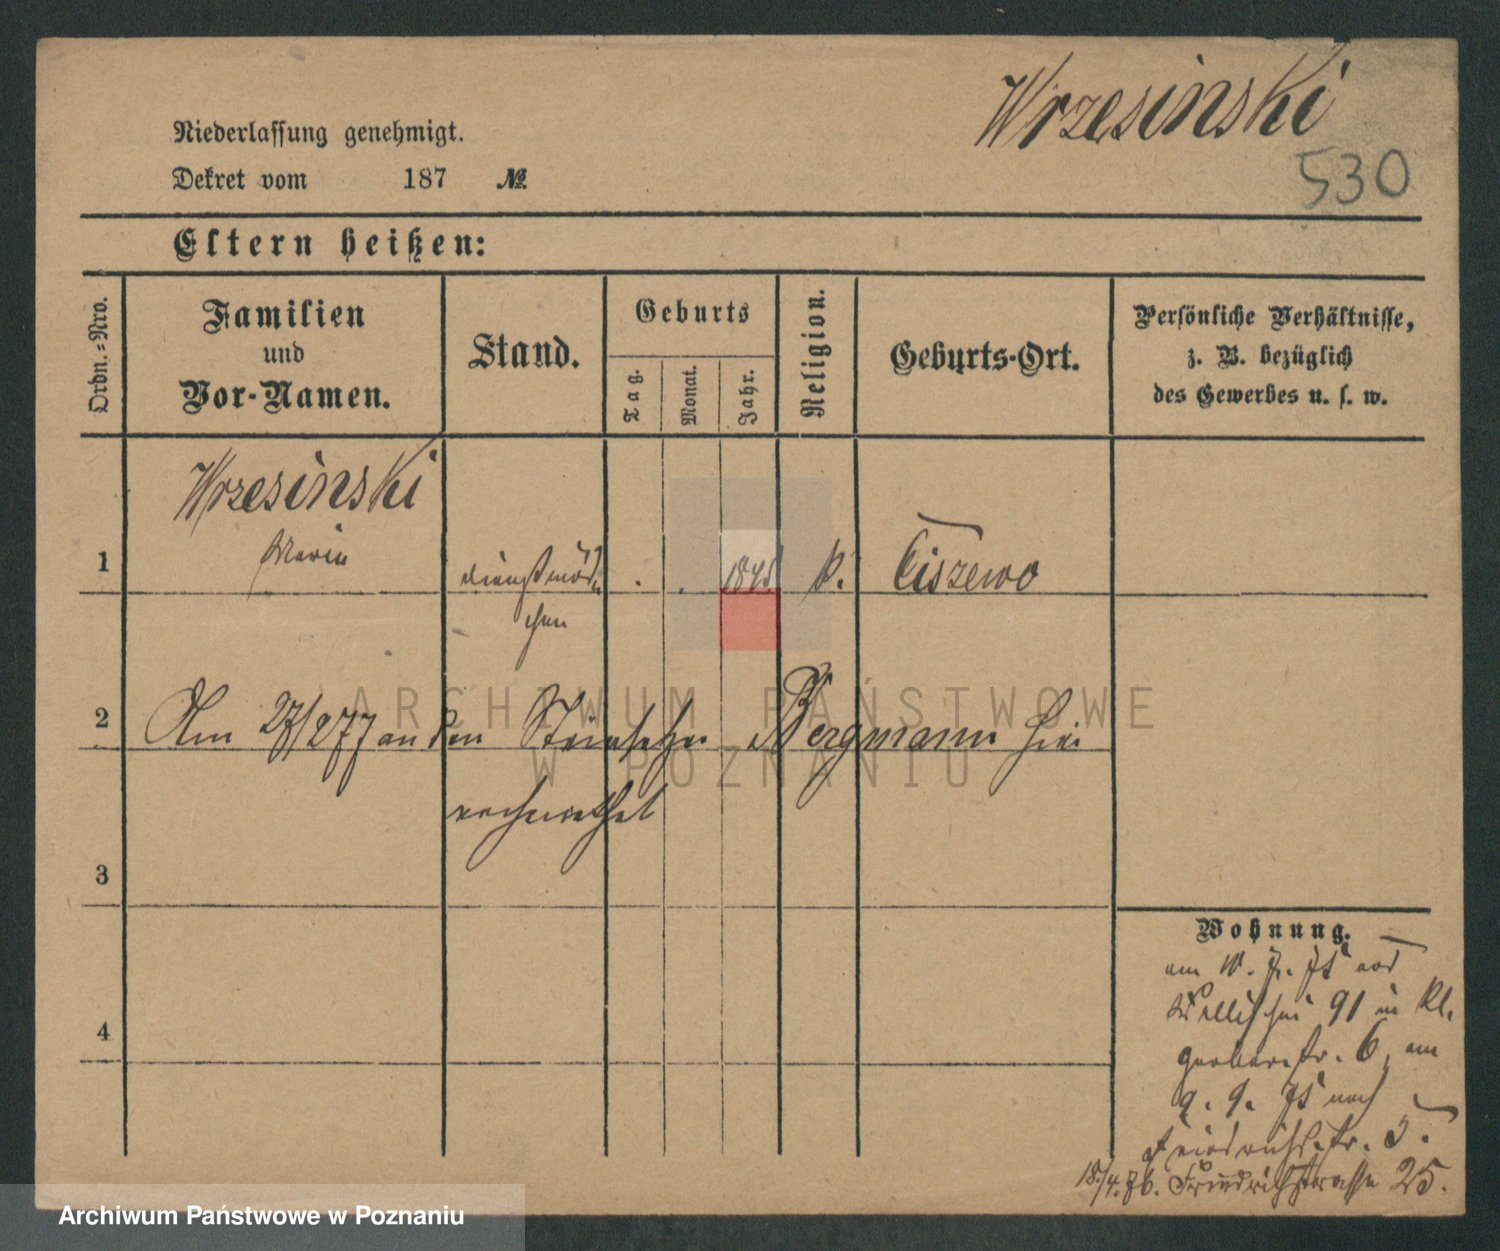 Wrzesinski
530
Niederlassung genehmigt.
Dekret vom 187 №
Eltern heißen:
Ordn.-Nro.
Familien
und
Vor-Namen.
Stand.
Geburts
Tag.
Monat.
Jahr.
Religion.
Geburts-Ort.
Persönliche Verhältnisse,
z. B. bezüglich
des Gewerbes u. s. w.
Wrzesinski
1 Maria dienstmäd 1845 k. Ciszewo
chen
2 Am 27/2 77 an den Steinsetzer Bergmann hier
verheirathet
3
4
Wohnung.
am 10. 7. 75
91 in Kl.
Gerberstr. 6, am
9. 9. 75 nach
Friedrichstr. 5.
18/4. 76. Friedrichstrasse 25.
ARCHIWUM PAŃSTWOWE
W POZNANIU
Archiwum Państwowe w Poznaniu